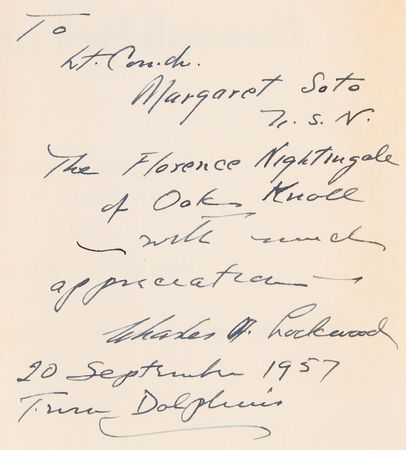 To
Lt. Comdr.
Margaret Soto
U.S.N.
The Florence Nightingale
of Oak Knoll
— with much
appreciation —
Charles A. Lockwood
20 September 1957
Twin Dolphins